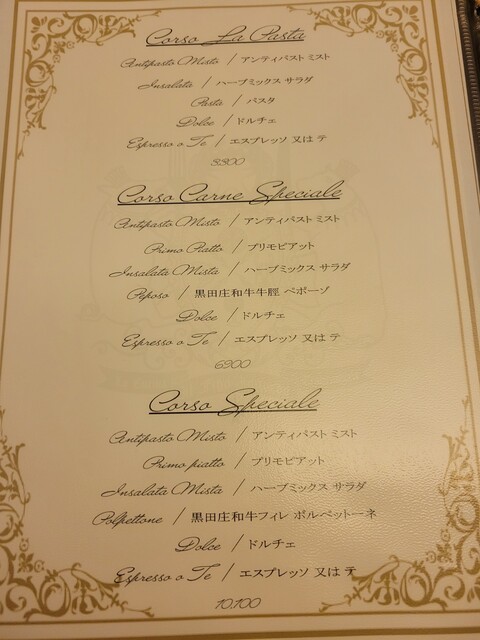 Corso La Pasta
Antipasto Misto / アンティパスト ミスト
Insalata / ハーブミックス サラダ
Pasta / パスタ
Dolce / ドルチェ
Espresso o Te / エスプレッソ 又は テ
3300
Corso Carne Speciale
Antipasto Misto / アンティパスト ミスト
Primo Piatto / プリモピアット
Insalata Mista / ハーブミックス サラダ
Peposo / 黒田庄和牛牛脛 ペポーゾ
Dolce / ドルチェ
Espresso o Te / エスプレッソ 又は テ
6900
Corso Speciale
Antipasto Misto / アンティパスト ミスト
Primo piatto / プリモピアット
Insalata Mista / ハーブミックス サラダ
Polpettone / 黒田庄和牛フィレ ポルペットーネ
Dolce / ドルチェ
Espresso o Te / エスプレッソ 又は テ
10.100